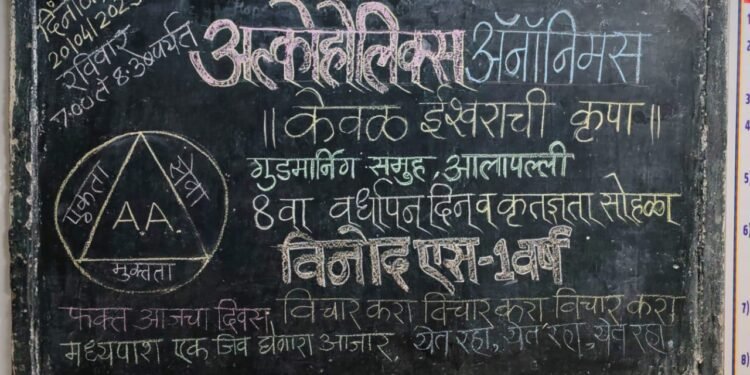 दिनांक
20/04/2025
रविवार
7:00 ते 8:30 पर्यंत
अल्कोहोलिक्स ॲनॉनिमस
॥ केवळ ईश्वराची कृपा ॥
गुडमार्निग समुह, आलापल्ली
8 वा वर्धापन दिन व कृतज्ञता सोहळा
विनोद एस - 1 वर्ष
एकता
सेवा
A.A.
मुक्तता
फक्त आजचा दिवस, विचार करा विचार करा, विचार करा
मध्यपाश एक जिव घेणारा आजार, येत रहा, येत रहा, येत रहा.
3
4
5)
6)
7)
8)